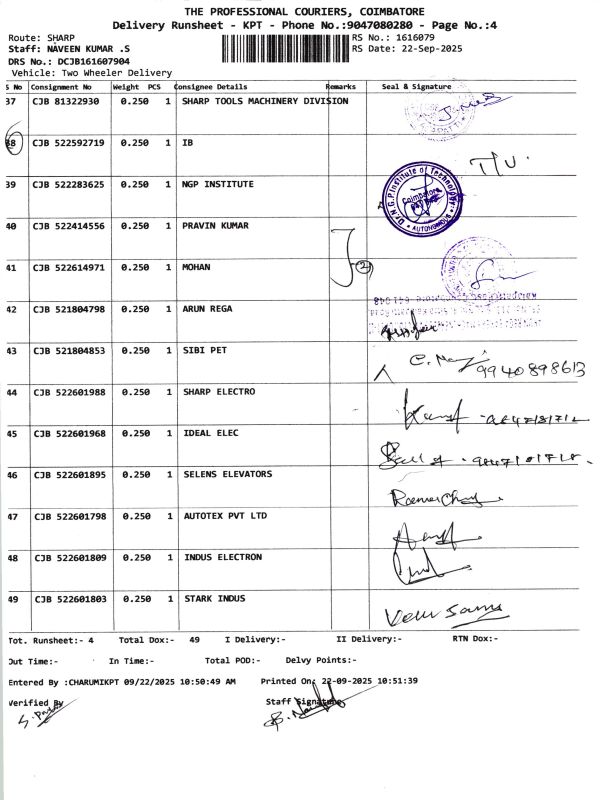 THE PROFESSIONAL COURIERS, COIMBATORE
Delivery Runsheet - KPT - Phone No.:9047080280 - Page No.:4
Route: SHARP
RS No.: 1616079
Staff: NAVEEN KUMAR .S
RS Date: 22-Sep-2025
DRS No.: DCJB161607904
Vehicle: Two Wheeler Delivery
S No Consignment No Weight PCS Consignee Details Remarks Seal & Signature
37 CJB 81322930 0.250 1 SHARP TOOLS MACHINERY DIVISION
38 CJB 522592719 0.250 1 IB
39 CJB 522283625 0.250 1 NGP INSTITUTE
Dr. N.G.P. Institute of Technology
Coimbatore
AUTONOMOUS
40 CJB 522414556 0.250 1 PRAVIN KUMAR
41 CJB 522614971 0.250 1 MOHAN
2
42 CJB 521804798 0.250 1 ARUN REGA
43 CJB 521804853 0.250 1 SIBI PET
9940898613
44 CJB 522601988 0.250 1 SHARP ELECTRO
45 CJB 522601968 0.250 1 IDEAL ELEC
46 CJB 522601895 0.250 1 SELENS ELEVATORS
47 CJB 522601798 0.250 1 AUTOTEX PVT LTD
48 CJB 522601809 0.250 1 INDUS ELECTRON
49 CJB 522601803 0.250 1 STARK INDUS
Tot. Runsheet:- 4 Total Dox:- 49 I Delivery:- II Delivery:- RTN Dox:-
Out Time:- In Time:- Total POD:- Delvy Points:-
Entered By :CHARUMIKPT 09/22/2025 10:50:49 AM Printed On: 22-09-2025 10:51:39
Verified By Staff Signature